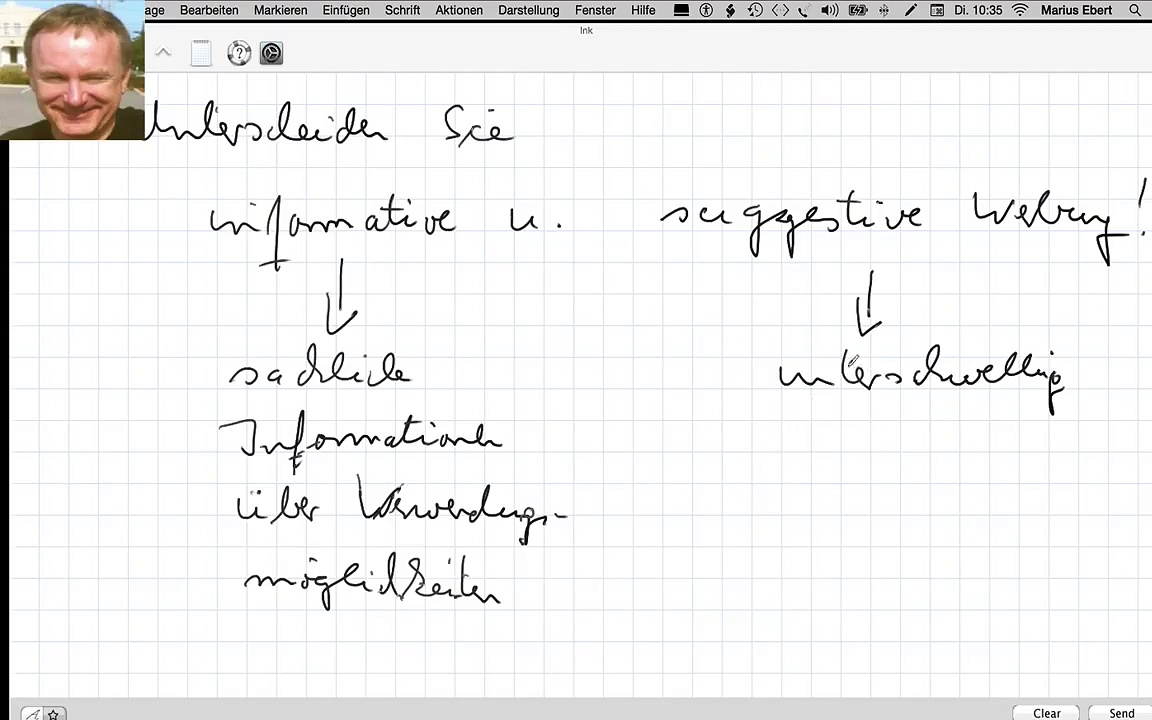 age Bearbeiten Markieren Einfügen Schrift Aktionen Darstellung Fenster Hilfe Di. 10:35 Marius Ebert
Ink
Unterscheiden Sie
informative u. suggestive Werbung!
sachliche unterschwellig
Informationen
über Verwendungs-
möglichkeiten
Clear Send